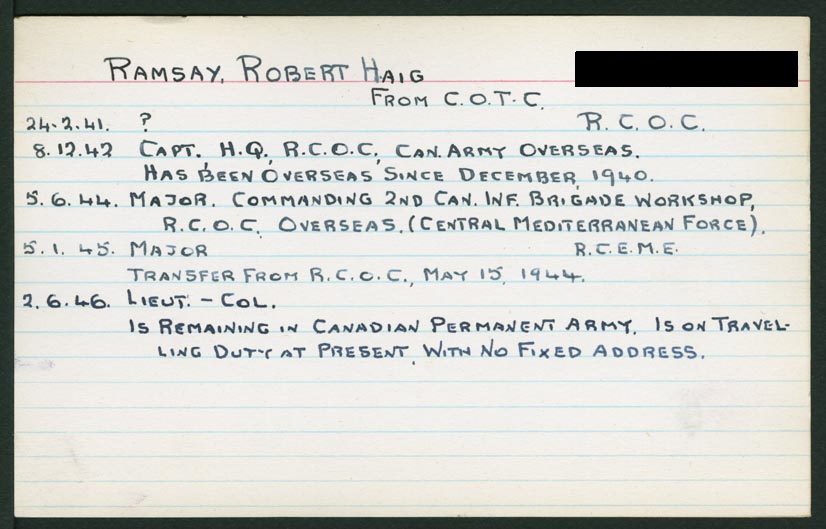 RAMSAY, ROBERT HAIG
FROM C.O.T.C.
24.2.41. ? R.C.O.C.
8.12.42 CAPT. H.Q., R.C.O.C., CAN. ARMY OVERSEAS.
HAS BEEN OVERSEAS SINCE DECEMBER, 1940.
5.6.44. MAJOR. COMMANDING 2ND CAN. INF. BRIGADE WORKSHOP,
R.C.O.C. OVERSEAS. (CENTRAL MEDITERRANEAN FORCE).
5.1.45. MAJOR R.C.E.M.E.
TRANSFER FROM R.C.O.C., MAY 15, 1944.
2.6.46. LIEUT. - COL.
IS REMAINING IN CANADIAN PERMANENT ARMY. IS ON TRAVEL-
LING DUTY AT PRESENT, WITH NO FIXED ADDRESS.